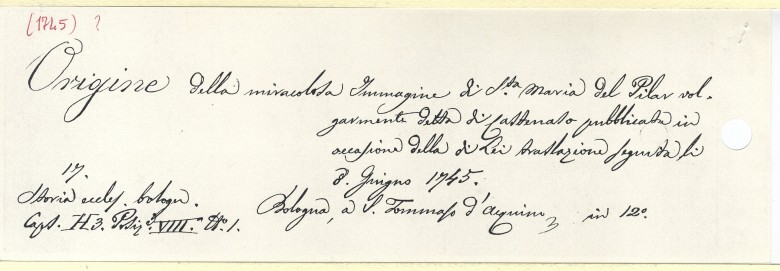 (1745) ?
Origine della miracolosa Immagine di S.ta Maria del Pilar vol-
garmente detta di Cattenato pubblicata in
occasione della di Lei traslazione seguita li
8. Giugno 1745.
17.
Storia eccles. bologn.
Bologna, a S. Tommaso d'Acquino, in 12º
Caps. H3. Posiz.e VIII.a Nº. 1.